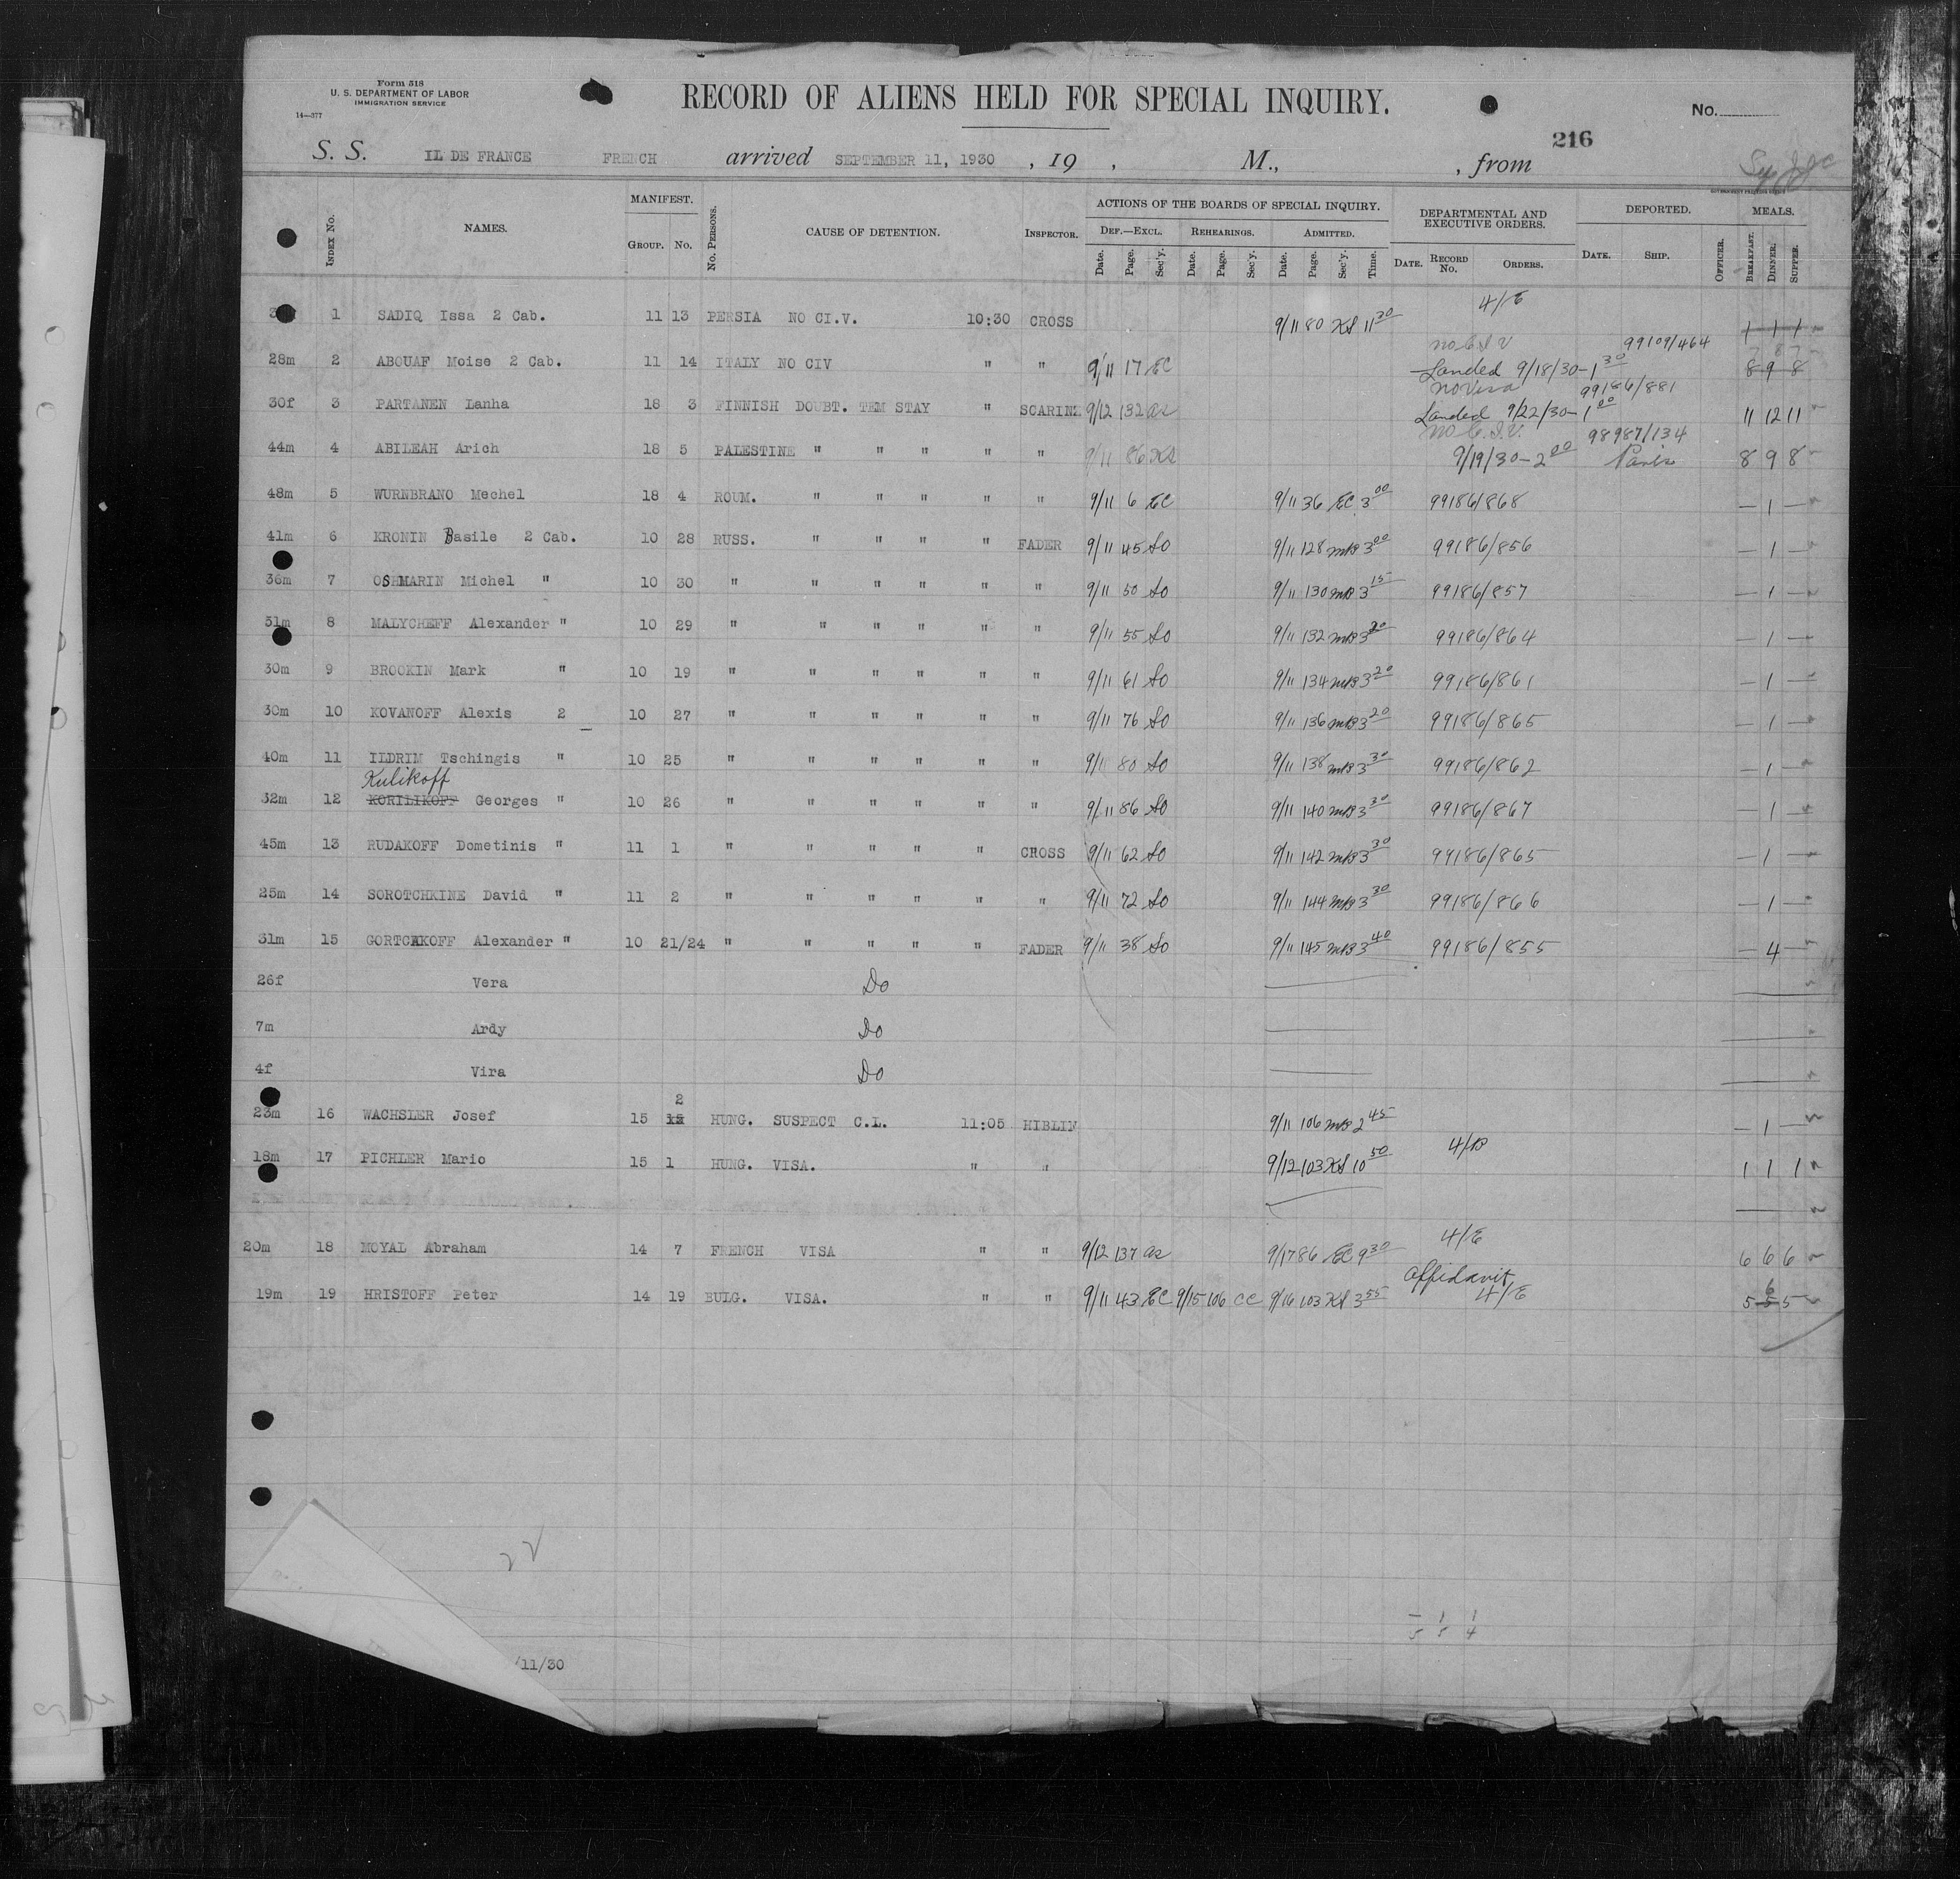 Form 518
U. S. DEPARTMENT OF LABOR
IMMIGRATION SERVICE
14—377
RECORD OF ALIENS HELD FOR SPECIAL INQUIRY.
No.
216
S. S. IL DE FRANCE FRENCH arrived SEPTEMBER 11, 1930 , 19 , M., , from
GOVERNMENT PRINTING OFFICE
INDEX No. NAMES. MANIFEST. GROUP. No. No. PERSONS. CAUSE OF DETENTION. INSPECTOR. ACTIONS OF THE BOARDS OF SPECIAL INQUIRY. DEF.—EXCL. Date. Page. Sec'y. REHEARINGS. Date. Page. Sec'y. ADMITTED. Date. Page. Sec'y. Time. DEPARTMENTAL AND EXECUTIVE ORDERS. DATE. RECORD No. ORDERS. DEPORTED. DATE. SHIP. OFFICER. MEALS. BREAKFAST. DINNER. SUPPER.
4/E
1 SADIQ Issa 2 Cab. 11 13 PERSIA NO CI.V. 10:30 CROSS 9/11 80 KS 11 30 1 1 1
no C I V 99109/464
28m 2 ABOUAF Moise 2 Cab. 11 14 ITALY NO CIV " " 9/11 17 EC Landed 9/18/30-1 30 8 9 8
no visa 99186/881
30f 3 PARTANEN Lanha 18 3 FINNISH DOUBT. TEM STAY " SCARINZ 9/12 132 as Landed 9/22/30-1 00 11 12 11
no C. I. V. 98987/134
44m 4 ABILEAH Arich 18 5 PALESTINE " " " " " 9/11 86 KS 9/19/30-2 00 Paris 8 9 8
48m 5 WURNBRANO Mechel 18 4 ROUM. " " " " " 9/11 6 EC 9/11 36 EC 3 00 99186/868 — 1 —
41m 6 KRONIN Basile 2 Cab. 10 28 RUSS. " " " " FADER 9/11 45 SO 9/11 128 MB 3 00 99186/856 — 1 —
36m 7 OSHMARIN Michel " 10 30 " " " " " " 9/11 50 SO 9/11 130 MB 3 15 99186/857 — 1 —
31m 8 MALYCHEFF Alexander " 10 29 " " " " " " 9/11 55 SO 9/11 132 MB 3 20 99186/864 — 1 —
30m 9 BROOKIN Mark " 10 19 " " " " " " 9/11 61 SO 9/11 134 MB 3 20 99186/861 — 1 —
30m 10 KOVANOFF Alexis 2 10 27 " " " " " " 9/11 76 SO 9/11 136 MB 3 20 99186/865 — 1 —
40m 11 ILDRIM Tschingis " 10 25 " " " " " " 9/11 80 SO 9/11 138 MB 3 30 99186/862 — 1 —
Kulikoff
32m 12 KORILIKOFF Georges " 10 26 " " " " " " 9/11 86 SO 9/11 140 MB 3 30 99186/867 — 1 —
45m 13 RUDAKOFF Dometinis " 11 1 " " " " " CROSS 9/11 62 SO 9/11 142 MB 3 30 99186/865 — 1 —
25m 14 SOROTCHKINE David " 11 2 " " " " " " 9/11 72 SO 9/11 144 MB 3 30 99186/866 — 1 —
31m 15 GORTCAKOFF Alexander " 10 21/24 " " " " " FADER 9/11 38 SO 9/11 145 MB 3 40 99186/855 — 4 —
26f Vera Do
7m Ardy Do
4f Vira Do
2
23m 16 WACHSLER Josef 15 15 HUNG. SUSPECT C.L. 11:05 HIBLIN 9/11 106 MB 2 45 — 1 —
4/B
18m 17 PICHLER Mario 15 1 HUNG. VISA. " " 9/12 103 KS 10 50 1 1 1
4/E
20m 18 MOYAL Abraham 14 7 FRENCH VISA " " 9/12 137 as 9/17 86 EC 9 30 6 6 6
affidavit
19m 19 HRISTOFF Peter 14 19 BULG. VISA. " " 9/11 43 EC 9/15 106 CC 9/16 103 KS 3 55 4/E 5 5 6 5
22
— 1 1
5 5 4
/11/30